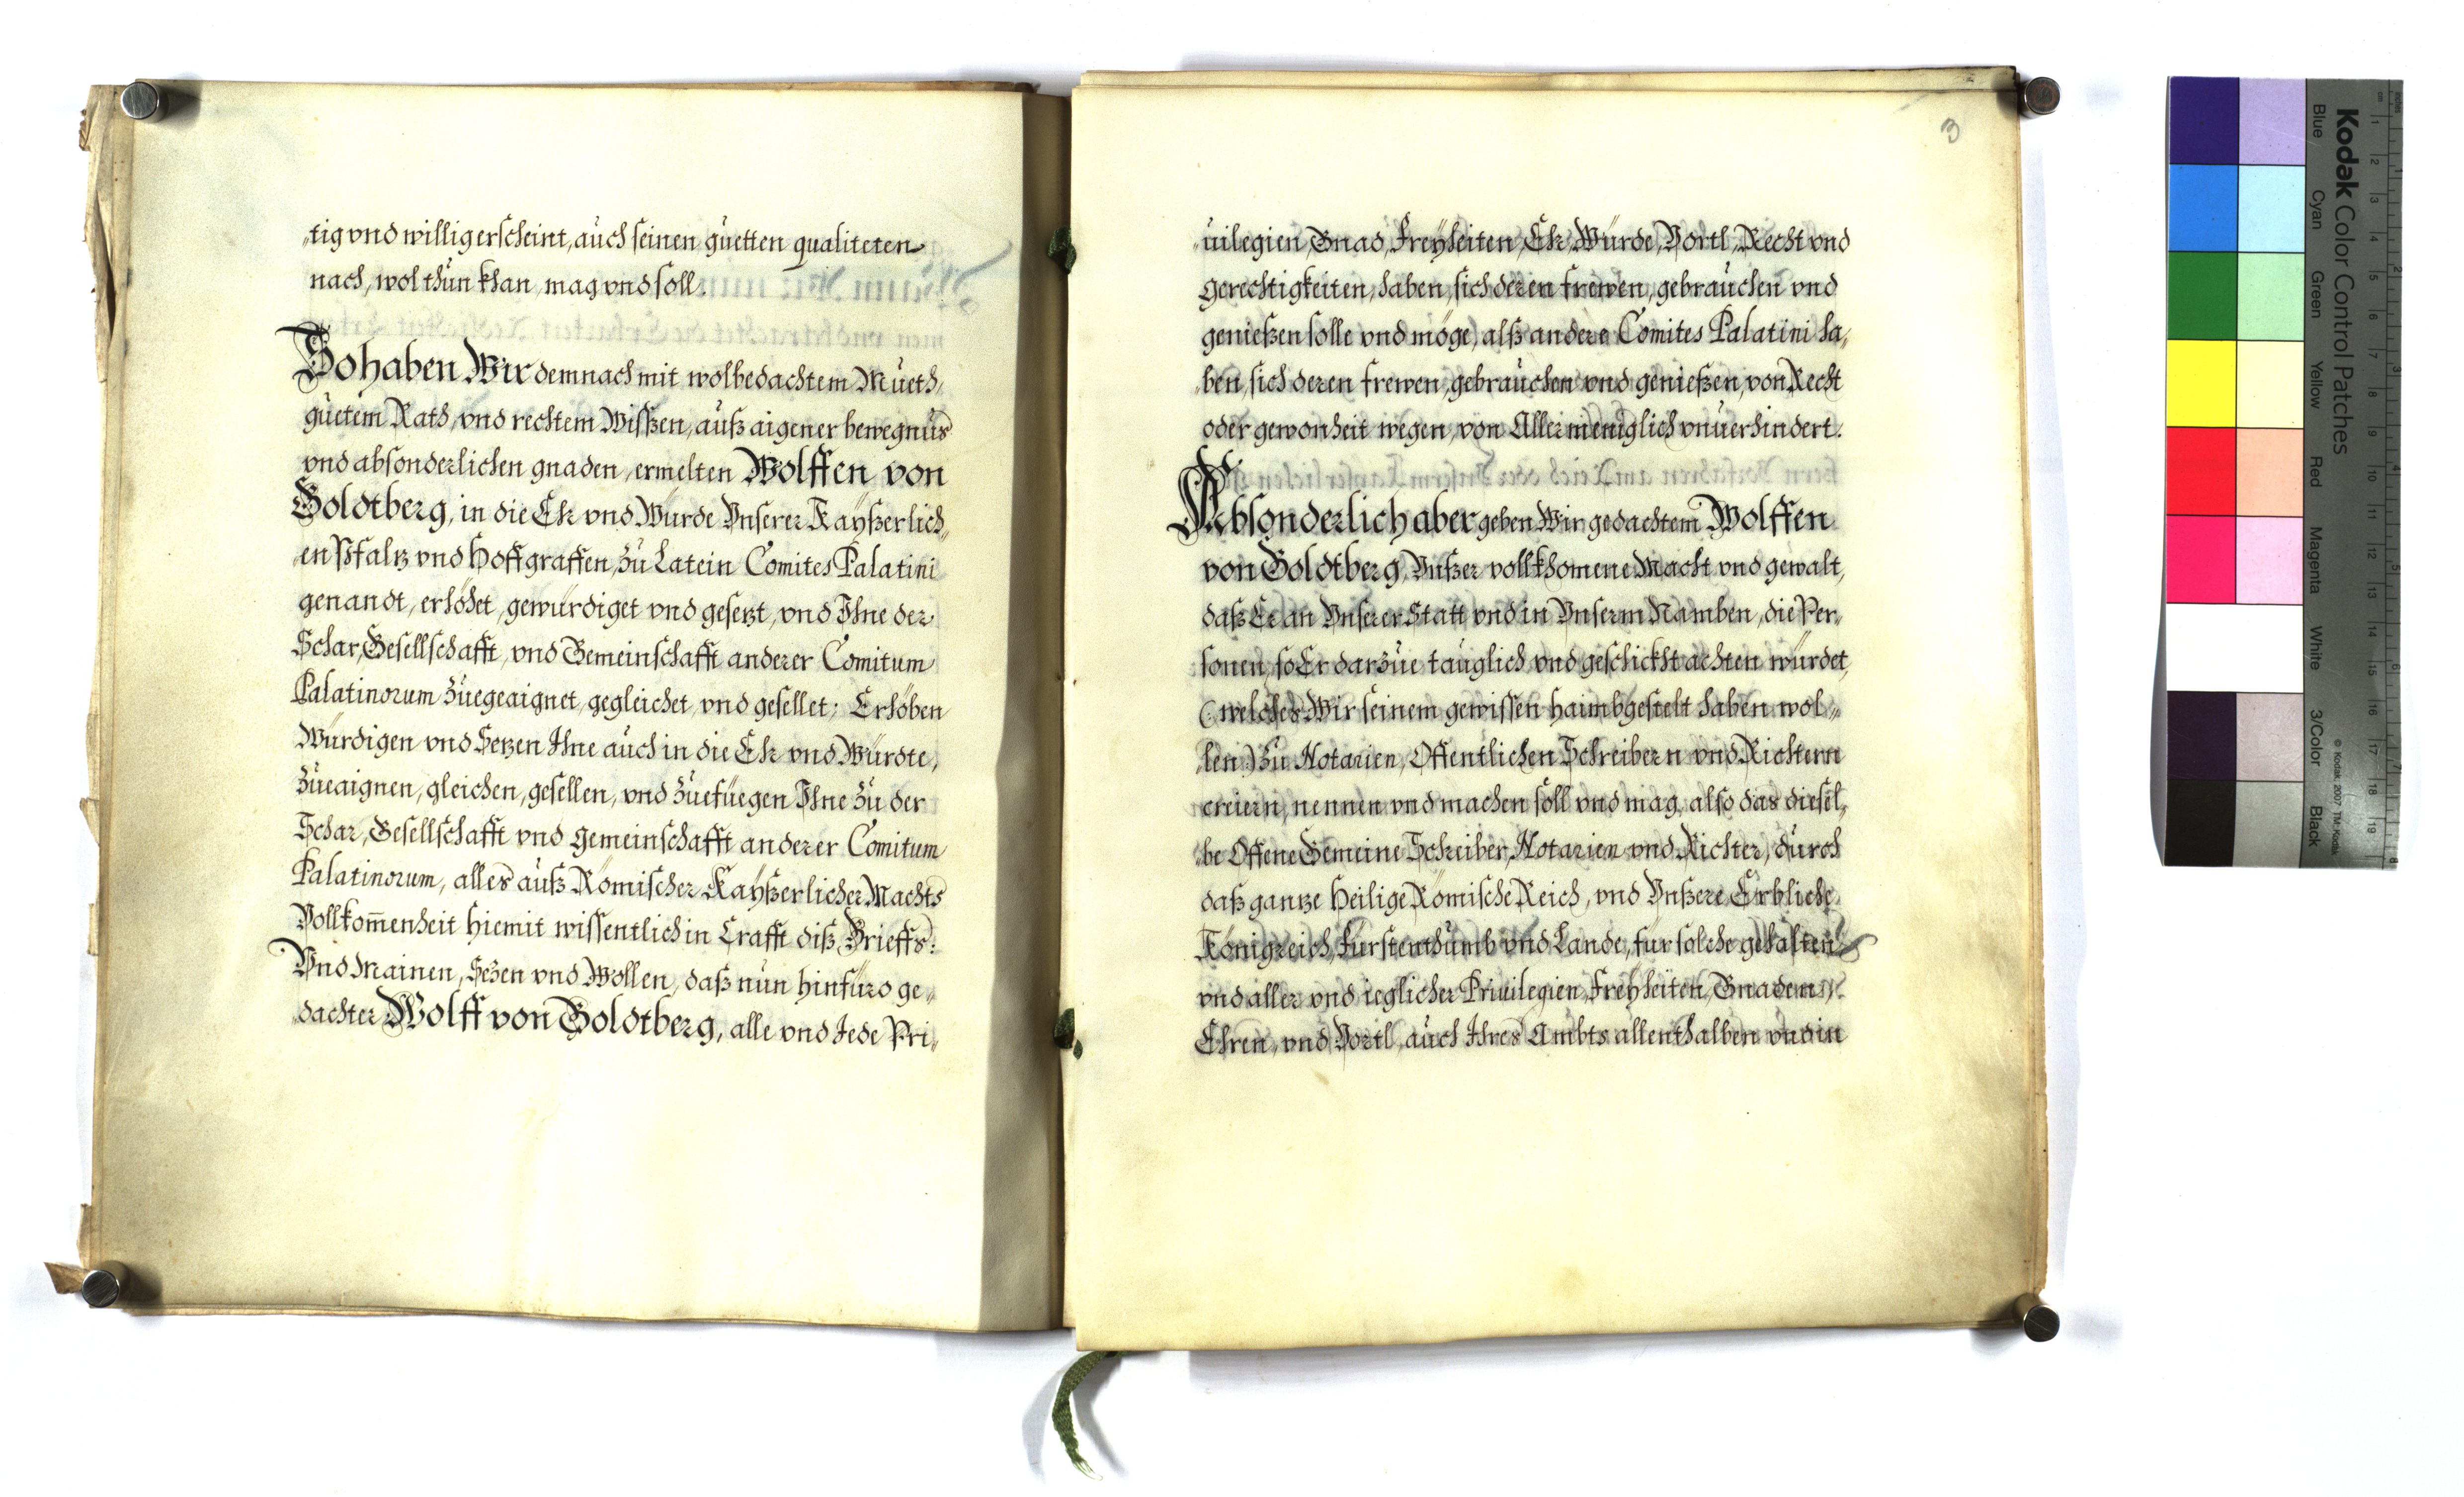 tig vnd willig erscheint, auch seinen guetten qualiteten
nach, wol thun khan, mag vnd soll.
So haben Wir demnach mit wolbedachtem Mueth,
guetem Rath, vnd rechtem Wißen, auß aigener bewegnus
vnd absonderlichen gnaden, ermelten Wolffen von
Goldtberg, in die Ehr vnd Würde Vnserer Kayßerlich„
„en Pfaltz vnd Hoffgraffen, zu Latein Comites Palatini
genandt, erhöhet, gewürdiget vnd gesetzt, vnd Ihne der
Schar, Gesellschafft, vnd Gemeinschafft anderer Comitum
Palatinorum zuegeaignet, gegleichet, vnd gesellet; Erhöben
Würdigen vnd Setzen Ihne auch in die Ehr vnd Würdte,
zueaignen, gleichen, gesellen, vnd zuefüegen Ihne zu der
Schar, Gesellschafft vnd gemeinschafft anderer Comitum
Palatinorum, alles auß Römischer Kayßerlicher Machts
Vollkom̄enheit hiemit wissentlich in Crafft diß Brieffs:
Vnd Mainen, Sezen vnd Wollen, daß nun hinfüro ge„
„dachter Wolff von Goldtberg, alle vnd Jede Pri„
3
„uilegien, Gnad, Freyheiten, Ehr, Würde, Vortl, Recht vnd
gerechtigkeiten, haben, sich deren frewen, gebrauchen vnd
genießen solle vnd möge, alß andere Comites Palatini ha„
„ben, sich deren frewen, gebrauchen vnd genießen, von Recht
oder gewonheit wegen, von Allermeniglich vnuerhindert.
Absonderlich aber geben Wir gedachtem Wolffen
von Goldtberg, Vnßer vollkhomene Macht vnd gewalt,
daß Er an Vnserer Statt vnd in Vnserm Namben, die Per„
sonen, so Er darzue tauglich vnd geschickht achten würdet,
(: welches Wir seinem gewissen haimbgestelt haben wol„
„len :) zu Notarien, Offentlichen Schreibern vnd Richtern
creiern, nennen vnd machen soll vnd mag, also das diesel„
„be Offene Gemeine Schreiber, Notarien vnd Richter, durch
daß gantze Heilige Römische Reich, vnd Vnßere Erbliche
Königreich, Fürstenthumb vnd Lande, für solche gehalten
vnd aller vnd ieglicher Priuilegien, Freyheiten, Gnaden,
Ehren, vnd Vortl, auch Ihres Ambts allenthalben vnd in
Kodak Color Control Patches
Blue Cyan Green Yellow Red Magenta White 3/Color Black
© Kodak, 2007 TM: Kodak
cm 1 2 3 4 5 6 7 8 9 10 11 12 13 14 15 16 17 18 19
inches 1 2 3 4 5 6 7 8